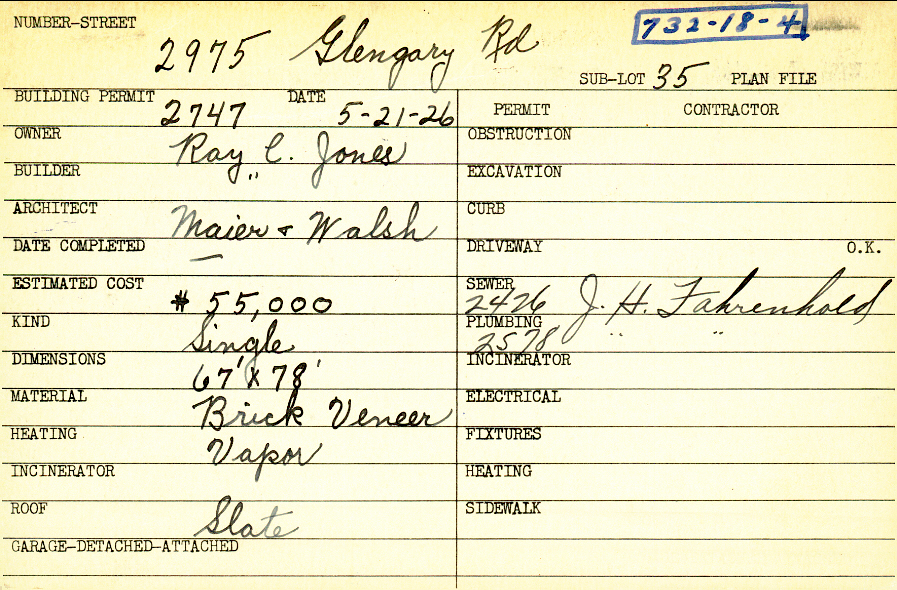 NUMBER-STREET
2975 Glengary Rd
732-18-4
SUB-LOT 35 PLAN FILE
BUILDING PERMIT 2747 DATE 5-21-26
OWNER Ray C. Jones
BUILDER "
ARCHITECT Maier & Walsh
DATE COMPLETED —
ESTIMATED COST # 55,000
KIND Single
DIMENSIONS 67' X 78'
MATERIAL Brick Veneer
HEATING Vapor
INCINERATOR
ROOF Slate
GARAGE-DETACHED-ATTACHED
PERMIT CONTRACTOR
OBSTRUCTION
EXCAVATION
CURB
DRIVEWAY O.K.
SEWER 2426 J. H. Fahrenhold
PLUMBING 2578 " "
INCINERATOR
ELECTRICAL
FIXTURES
HEATING
SIDEWALK